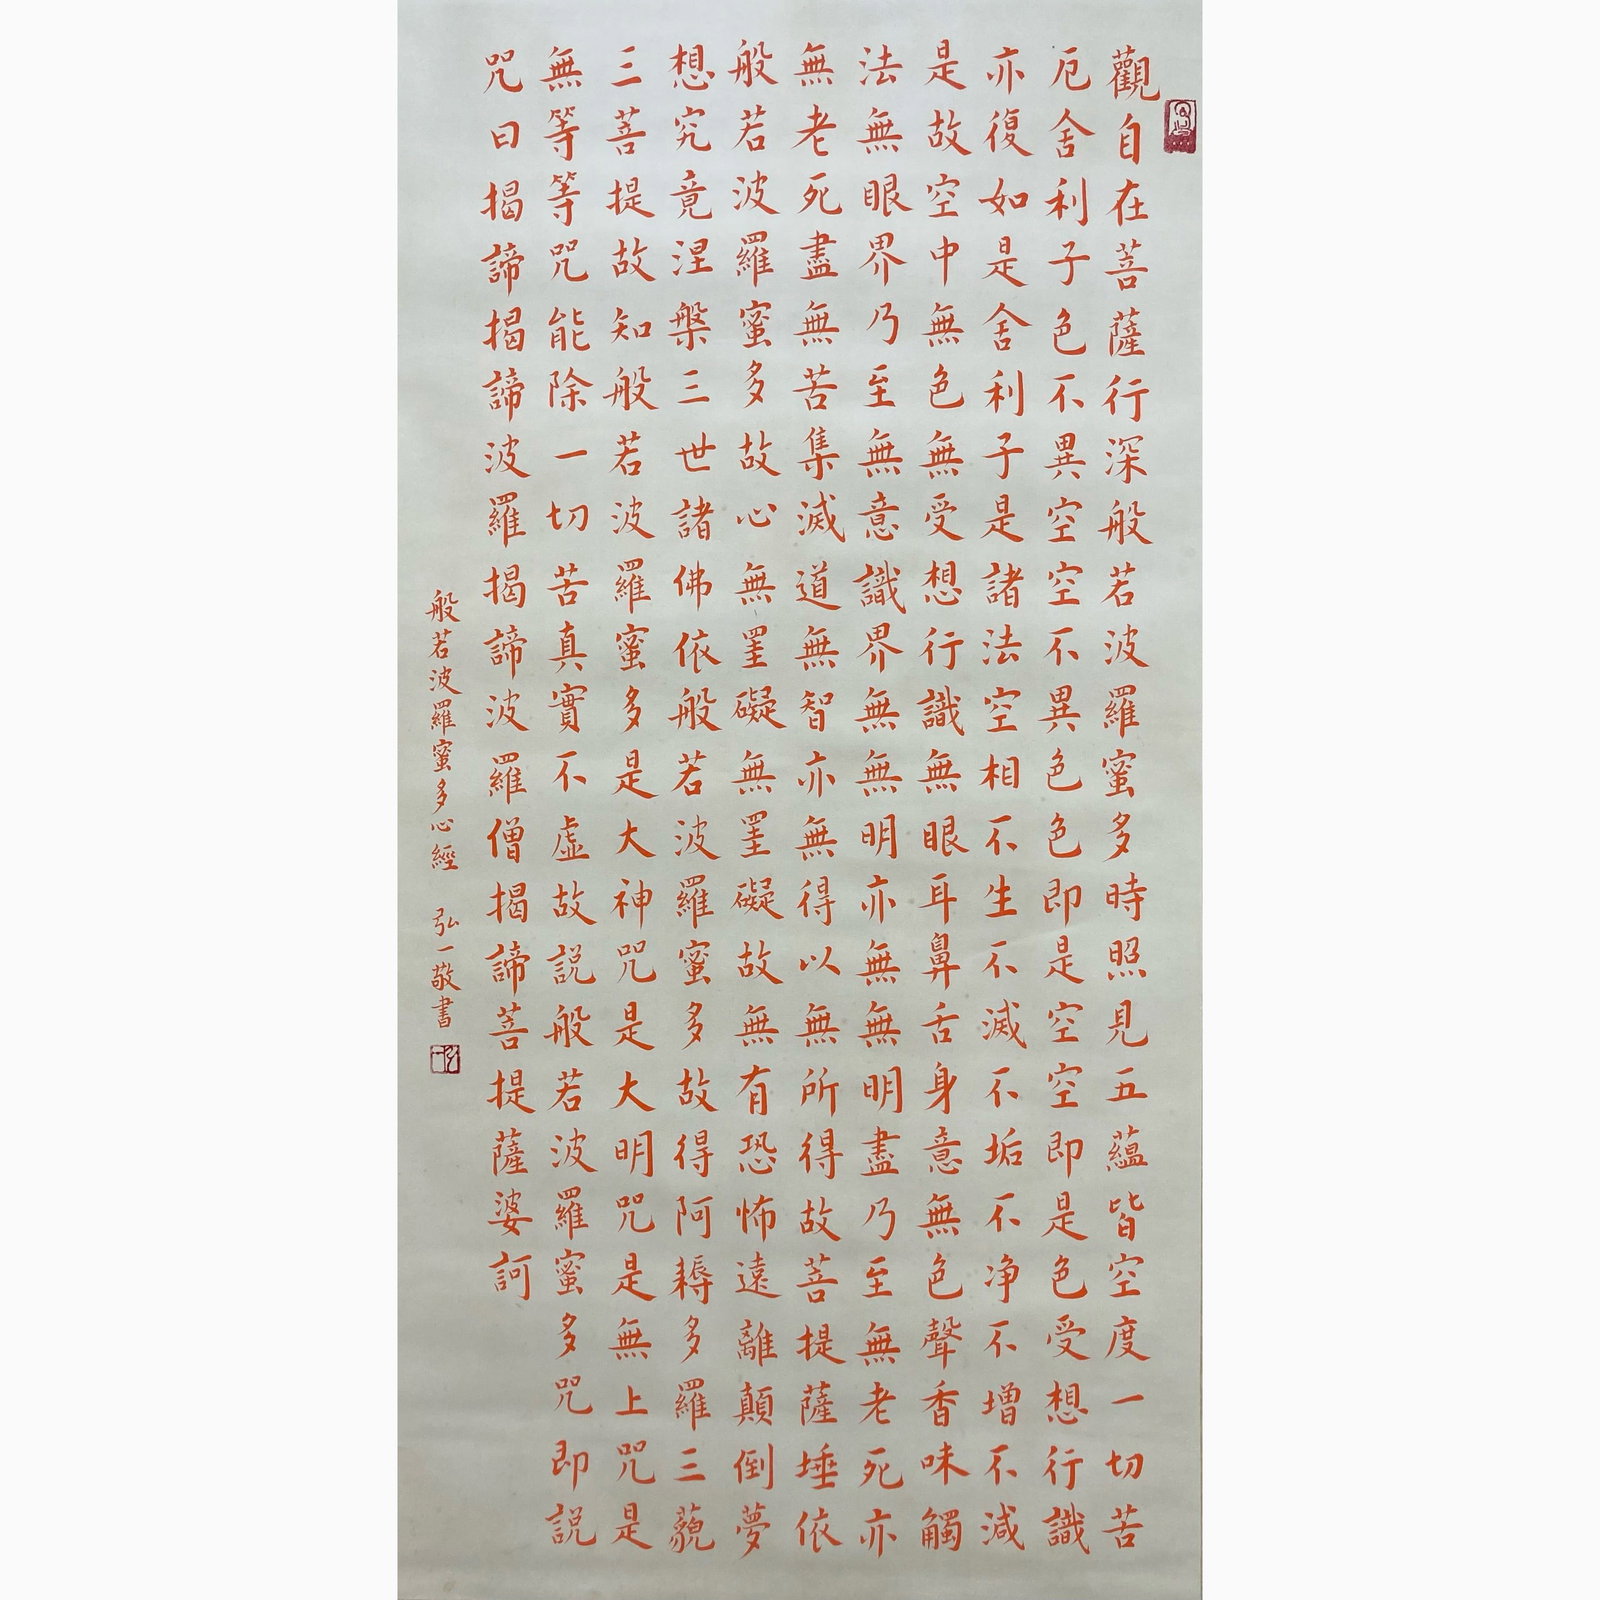 觀自在菩薩行深般若波羅蜜多時照見五蘊皆空度一切苦
厄舍利子色不異空空不異色色即是空空即是色受想行識
亦復如是舍利子是諸法空相不生不滅不垢不净不增不減
是故空中無色無受想行識無眼耳鼻舌身意無色聲香味觸
法無眼界乃至無意識界無無明亦無無明盡乃至無老死亦
無老死盡無苦集滅道無智亦無得以無所得故菩提薩埵依
般若波羅蜜多故心無罣礙無罣礙故無有恐怖遠離顛倒夢
想究竟涅槃三世諸佛依般若波羅蜜多故得阿耨多羅三藐
三菩提故知般若波羅蜜多是大神咒是大明咒是無上咒是
無等等咒能除一切苦真實不虛故説般若波羅蜜多咒即説
咒曰揭諦揭諦波羅揭諦波羅僧揭諦菩提薩婆訶
般若波羅蜜多心經 弘一敬書
弘一